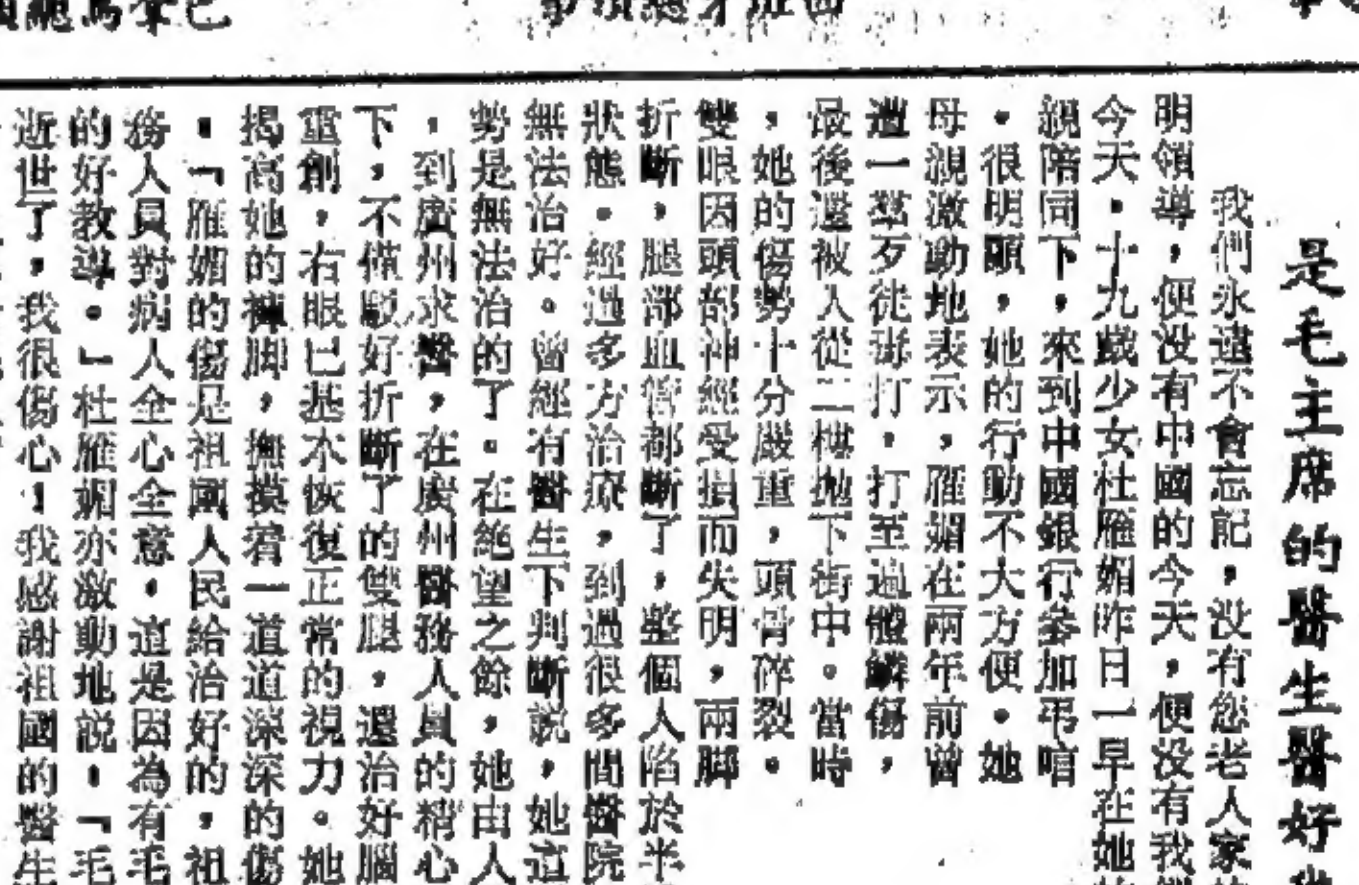 是毛主席的醫生醫好
我們永遠不會忘記，没有您老人家
明領導，便没有中國的今天，便没有我
今天。十九歲少女杜雁媚昨日一早在她
親陪同下，來到中國銀行參加弔唁
。很明顯，她的行動不大方便。她
母親激動地表示，雁媚在兩年前曾
遭一羣歹徒毒打。打至遍體鱗傷，
最後還被人從二樓拋下街中。當時
，她的傷勢十分嚴重，頭骨碎裂。
雙眼因頭部神經受損而失明，兩脚
折斷，腿部血管都斷了，整個人陷於半
狀態。經過多方治療，到過很多間醫院
無法治好。曾經有醫生下判斷説，她這
勢是無法治的了。在絶望之餘，她由人
，到廣州求醫，在廣州醫務人員的精心
下，不僅駁好折斷了的雙腿，還治好腦
重創，右眼已基本恢復正常的視力。她
揭高她的褲脚，撫摸着一道道深深的傷
。「雁媚的傷是祖國人民給治好的，祖
務人員對病人全心全意，這是因為有毛
的好教導。」杜雁媚亦激動地説。「毛
逝世了，我很傷心！我感謝祖國的醫生